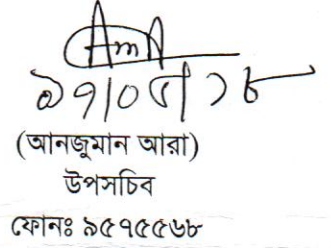 ২৭/০৫/১৮
(আনজুমান আরা)
উপসচিব
ফোনঃ ৯৫৭৫৫৬৮